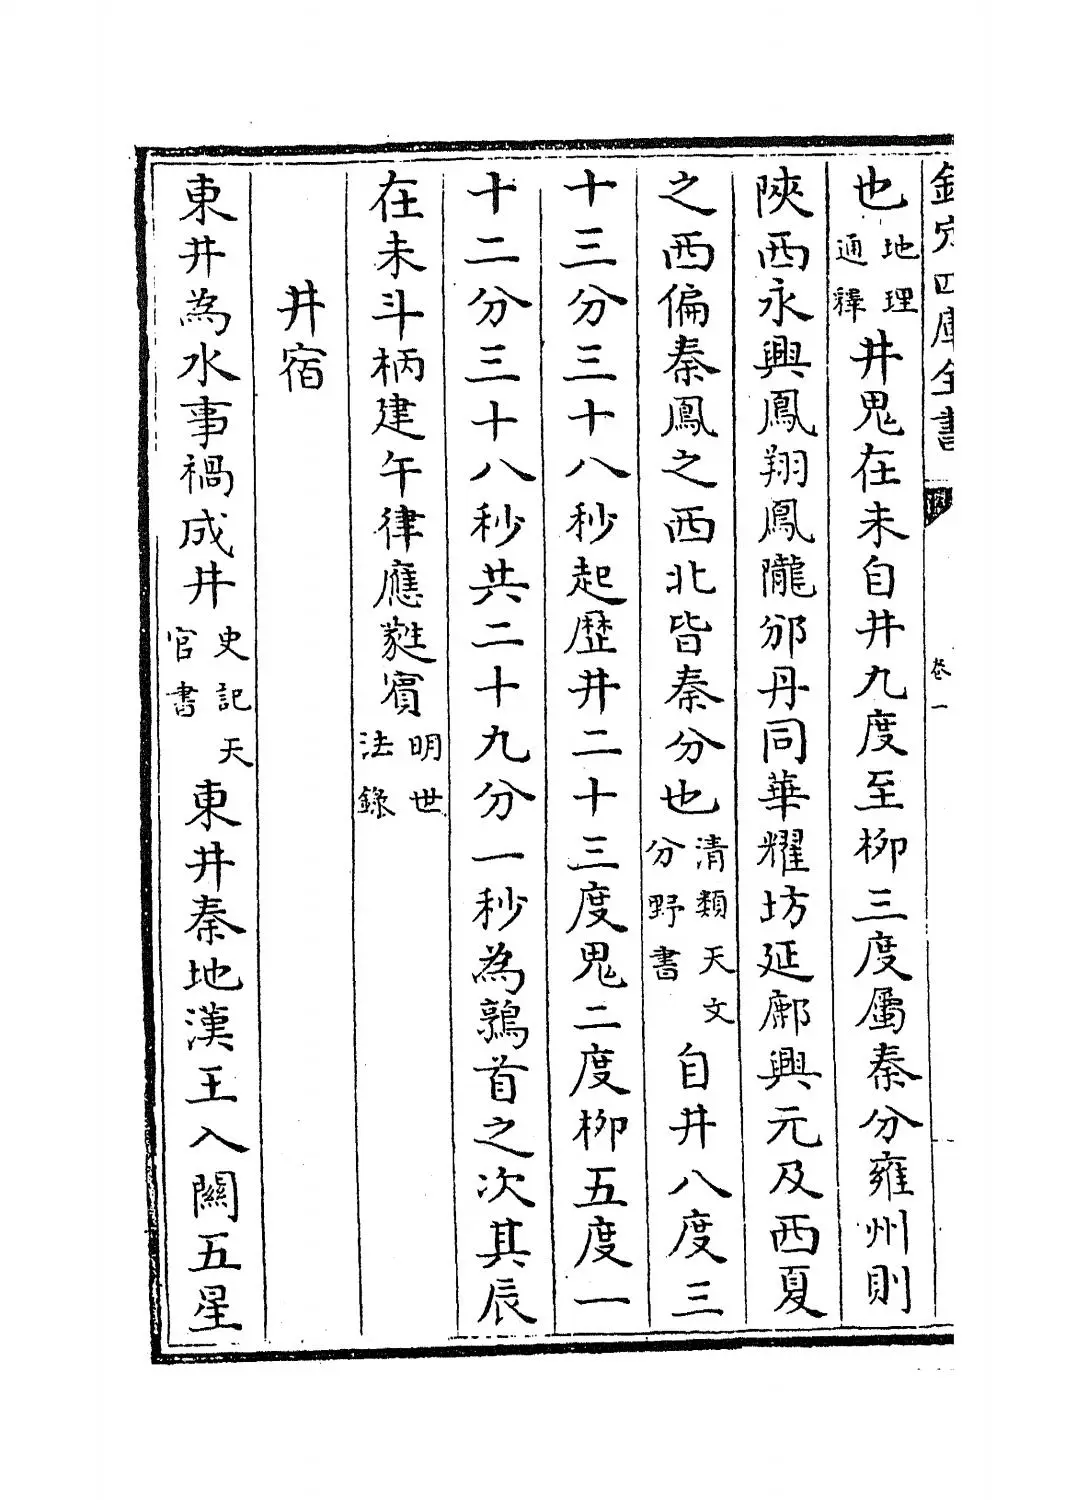 欽定四庫全書
卷一
也地理通釋井鬼在未自井九度至柳三度屬秦分雍州則
陜西永興鳳翔鳳隴邠丹同華耀坊延鄜興元及西夏
之西偏秦鳳之西北皆秦分也清類天文分野書自井八度三
十三分三十八秒起歷井二十三度鬼二度柳五度一
十二分三十八秒共二十九分一秒為鶉首之次其辰
在未斗柄建午律應蕤賓明世法錄
井宿
東井為水事禍成井史記天官書東井秦地漢王入關五星